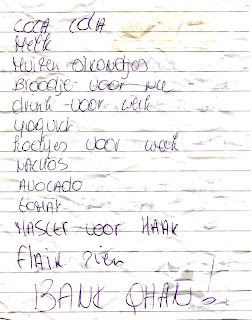 COCA COLA
Melk
Muizen
Broodje voor nu
drink voor werk
yogurt
Koekjes voor week
NACHOS
AVOCADO
tomat
MASCER voor HAAR
flair zien
BANK